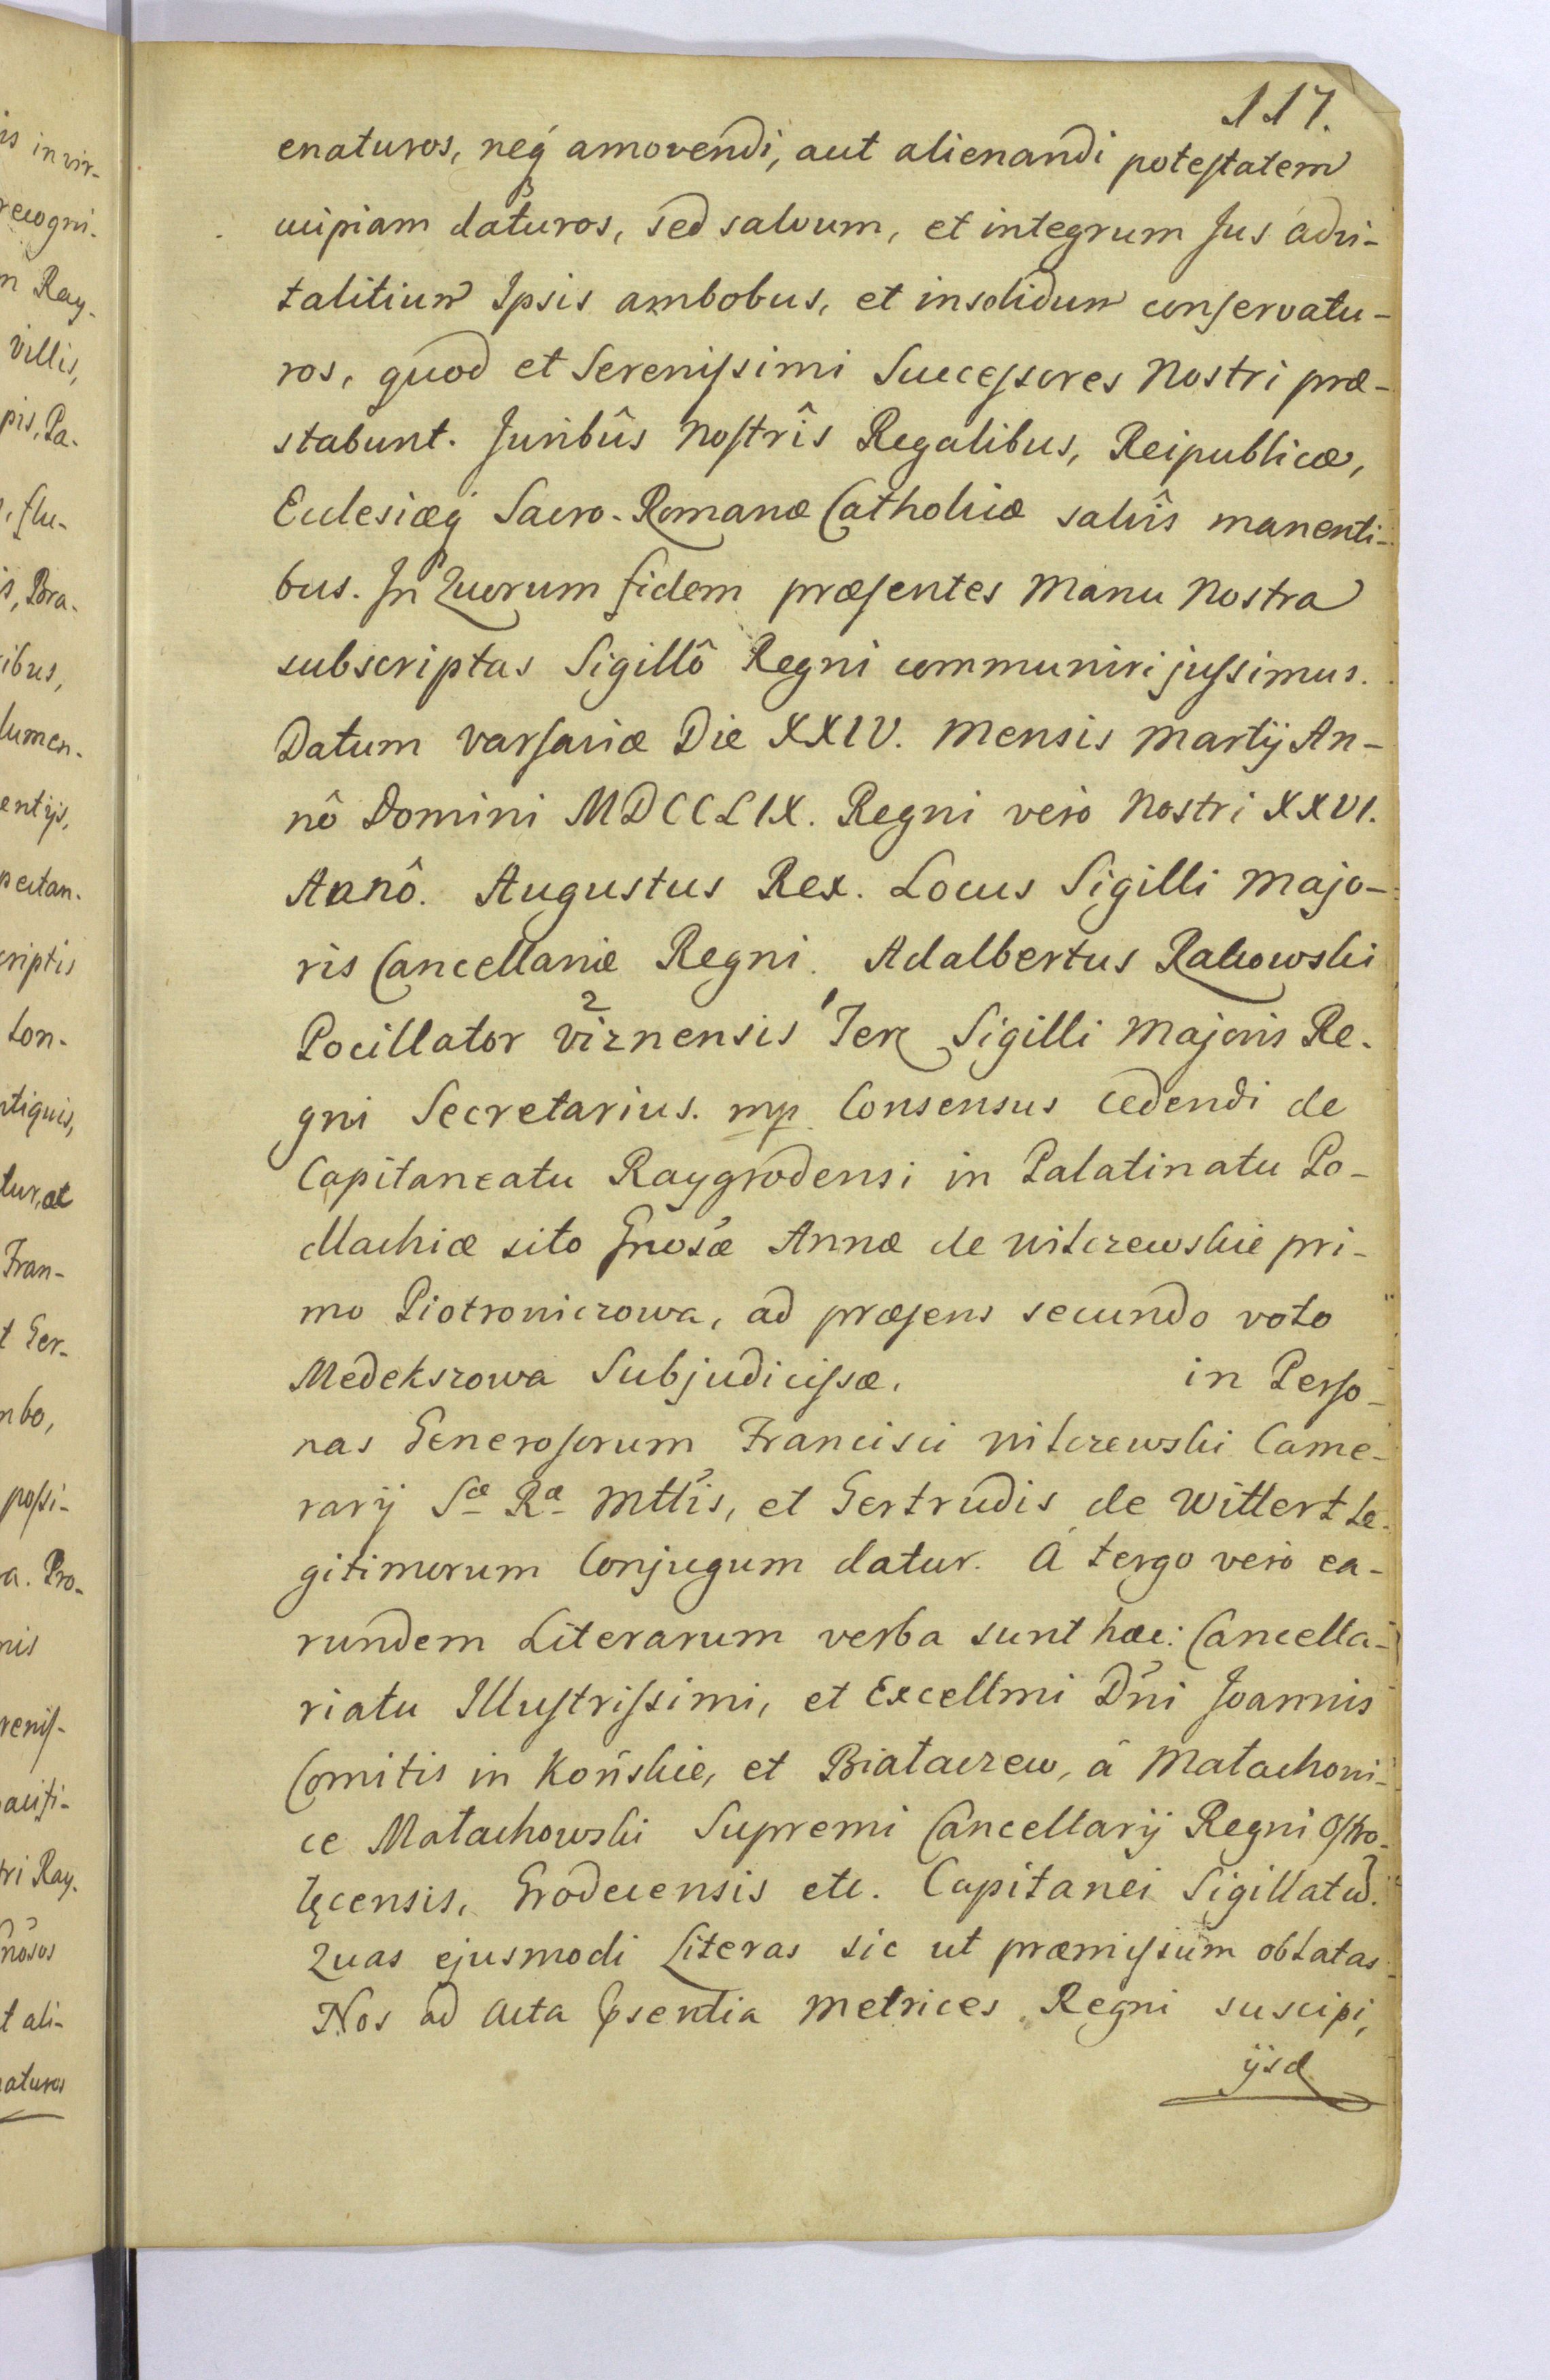 117.
enaturos, neq́ amovendi, aut alienandi potestatem
cuipiam daturos, sed salvum, et integrum Jus advi-
talitium Ipsis ambobus, et insolidum conservatu-
ros, quod et Serenissimi Successores Nostri præ-
stabunt. Juribûs Nostrîs Regalibus, Reipublicæ,
Ecclesiæq́ Sacro-Romanæ Catholicæ salvîs manenti-
bus. In Quorum fidem præsentes Manu Nostra
subscriptas Sigillô Regni communiri jussimus.
Datum Varsaviæ Die XXIV. Mensis Martij An-
nô Domini MDCCLIX. Regni vero Nostri XXVI.
Annô. Augustus Rex. Locus Sigilli Majo-
ris Cancellariæ Regni. Adalbertus Rakowski
Pocillator Viznensis Ter Sigilli Majoris Re-
gni Secretarius. mp. Consensus cedendi de
Capitaneatu Raygrodensi in Palatinatu Po-
dlachiæ sito Gnosæ Annæ de Nitczewskie pri-
mo Piotroniczowa, ad præsens secundo voto
Medekszowa Subjudicissæ, in Perso-
nas Generosorum Francisci Nitczewski Came-
rarij Sæ Ræ Mttis, et Gertrudis de Wittert Le-
gitimorum Conjugum datur. A tergo vero ea-
rundem Literarum verba sunt hæc: Cancella-
riatu Illustrissimi, et Excellmi Dni Joannis
Comitis in Końskie, et Białaczew, á Małachowi-
ce Małachowski Supremi Cancellarij Regni Ostro-
łęcensis, Grodecensis etc. Capitanei Sigillatum.
Quas ejusmodi Literas sic ut præmissum oblatas
Nos ad Acta psentia Metrices Regni suscipi,
ijsd